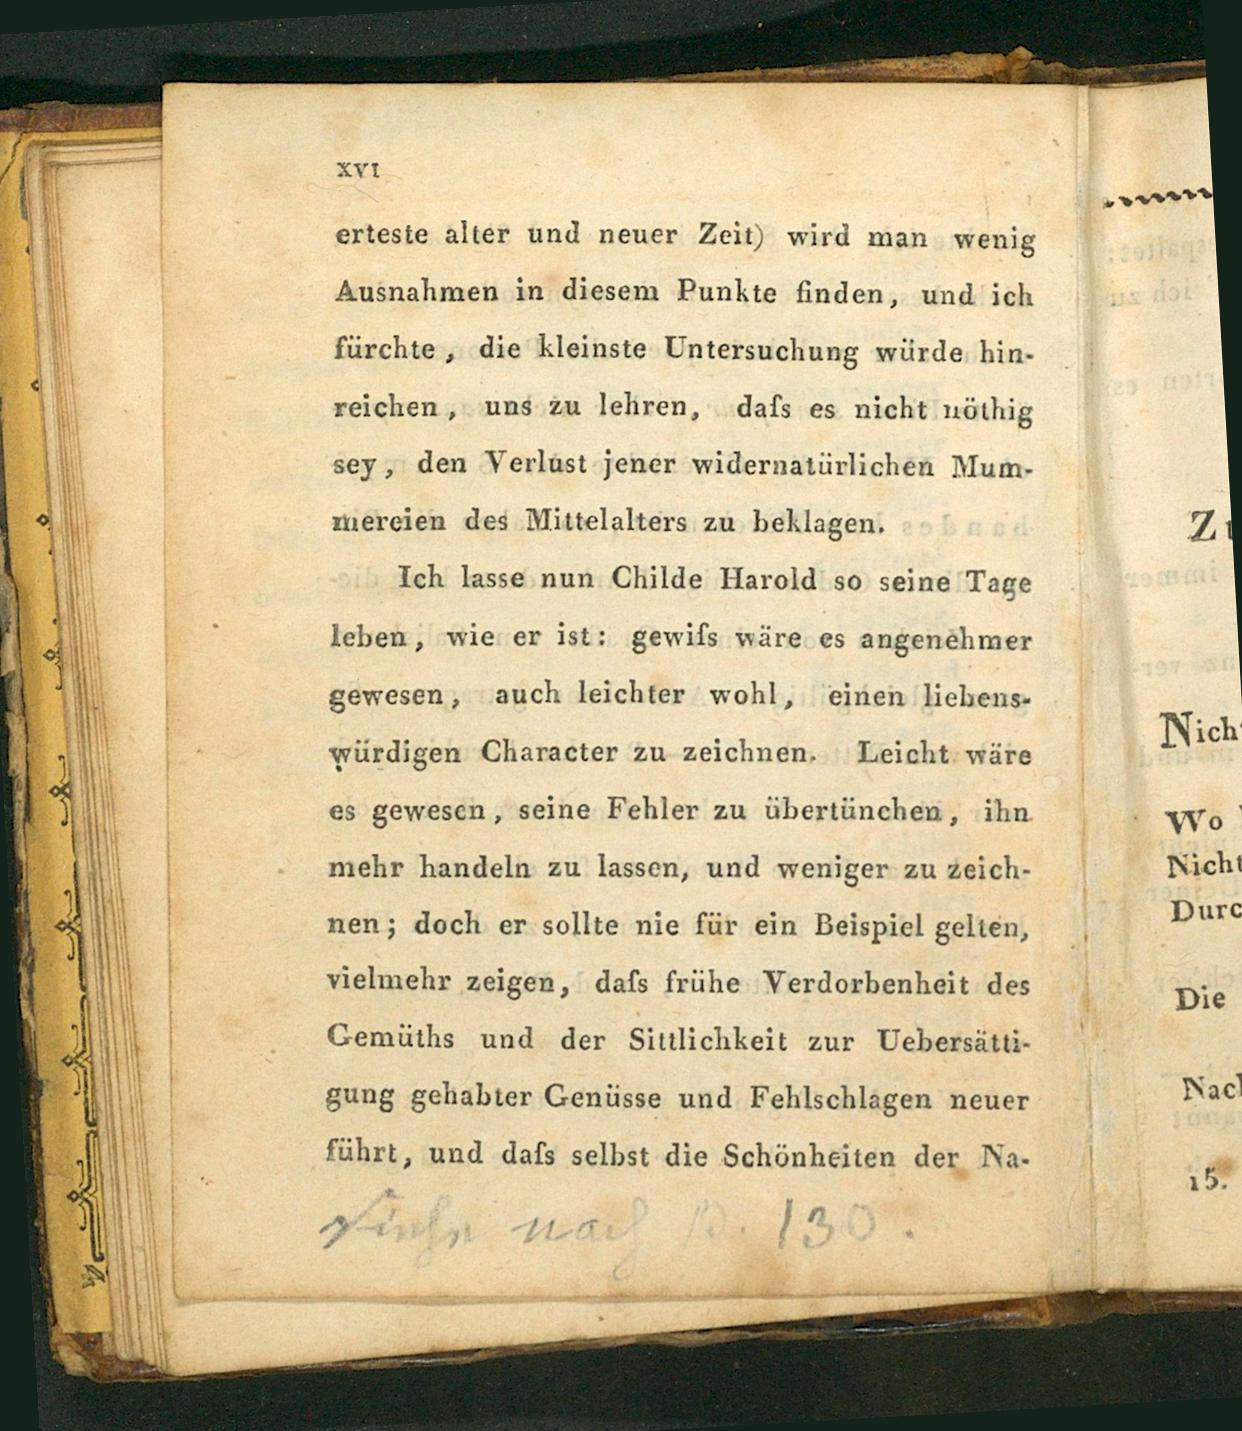 XVI
erteste alter und neuer Zeit) wird man wenig
Ausnahmen in diesem Punkte finden, und ich
fürchte, die kleinste Untersuchung würde hin-
reichen, uns zu lehren, daſs es nicht nöthig
sey, den Verlust jener widernatürlichen Mum-
mereien des Mittelalters zu beklagen.
Ich lasse nun Childe Harold so seine Tage
leben, wie er ist: gewiſs wäre es angenehmer
gewesen, auch leichter wohl, einen liebens-
würdigen Character zu zeichnen. Leicht wäre
es gewesen, seine Fehler zu übertünchen, ihn
mehr handeln zu lassen, und weniger zu zeich-
nen; doch er sollte nie für ein Beispiel gelten,
vielmehr zeigen, daſs frühe Verdorbenheit des
Gemüths und der Sittlichkeit zur Uebersätti-
gung gehabter Genüsse und Fehlschlagen neuer
führt, und daſs selbst die Schönheiten der Na-
Siehe nach p. 130.
Nich
Wo
Nicht
Durc
Die
Nach
15.